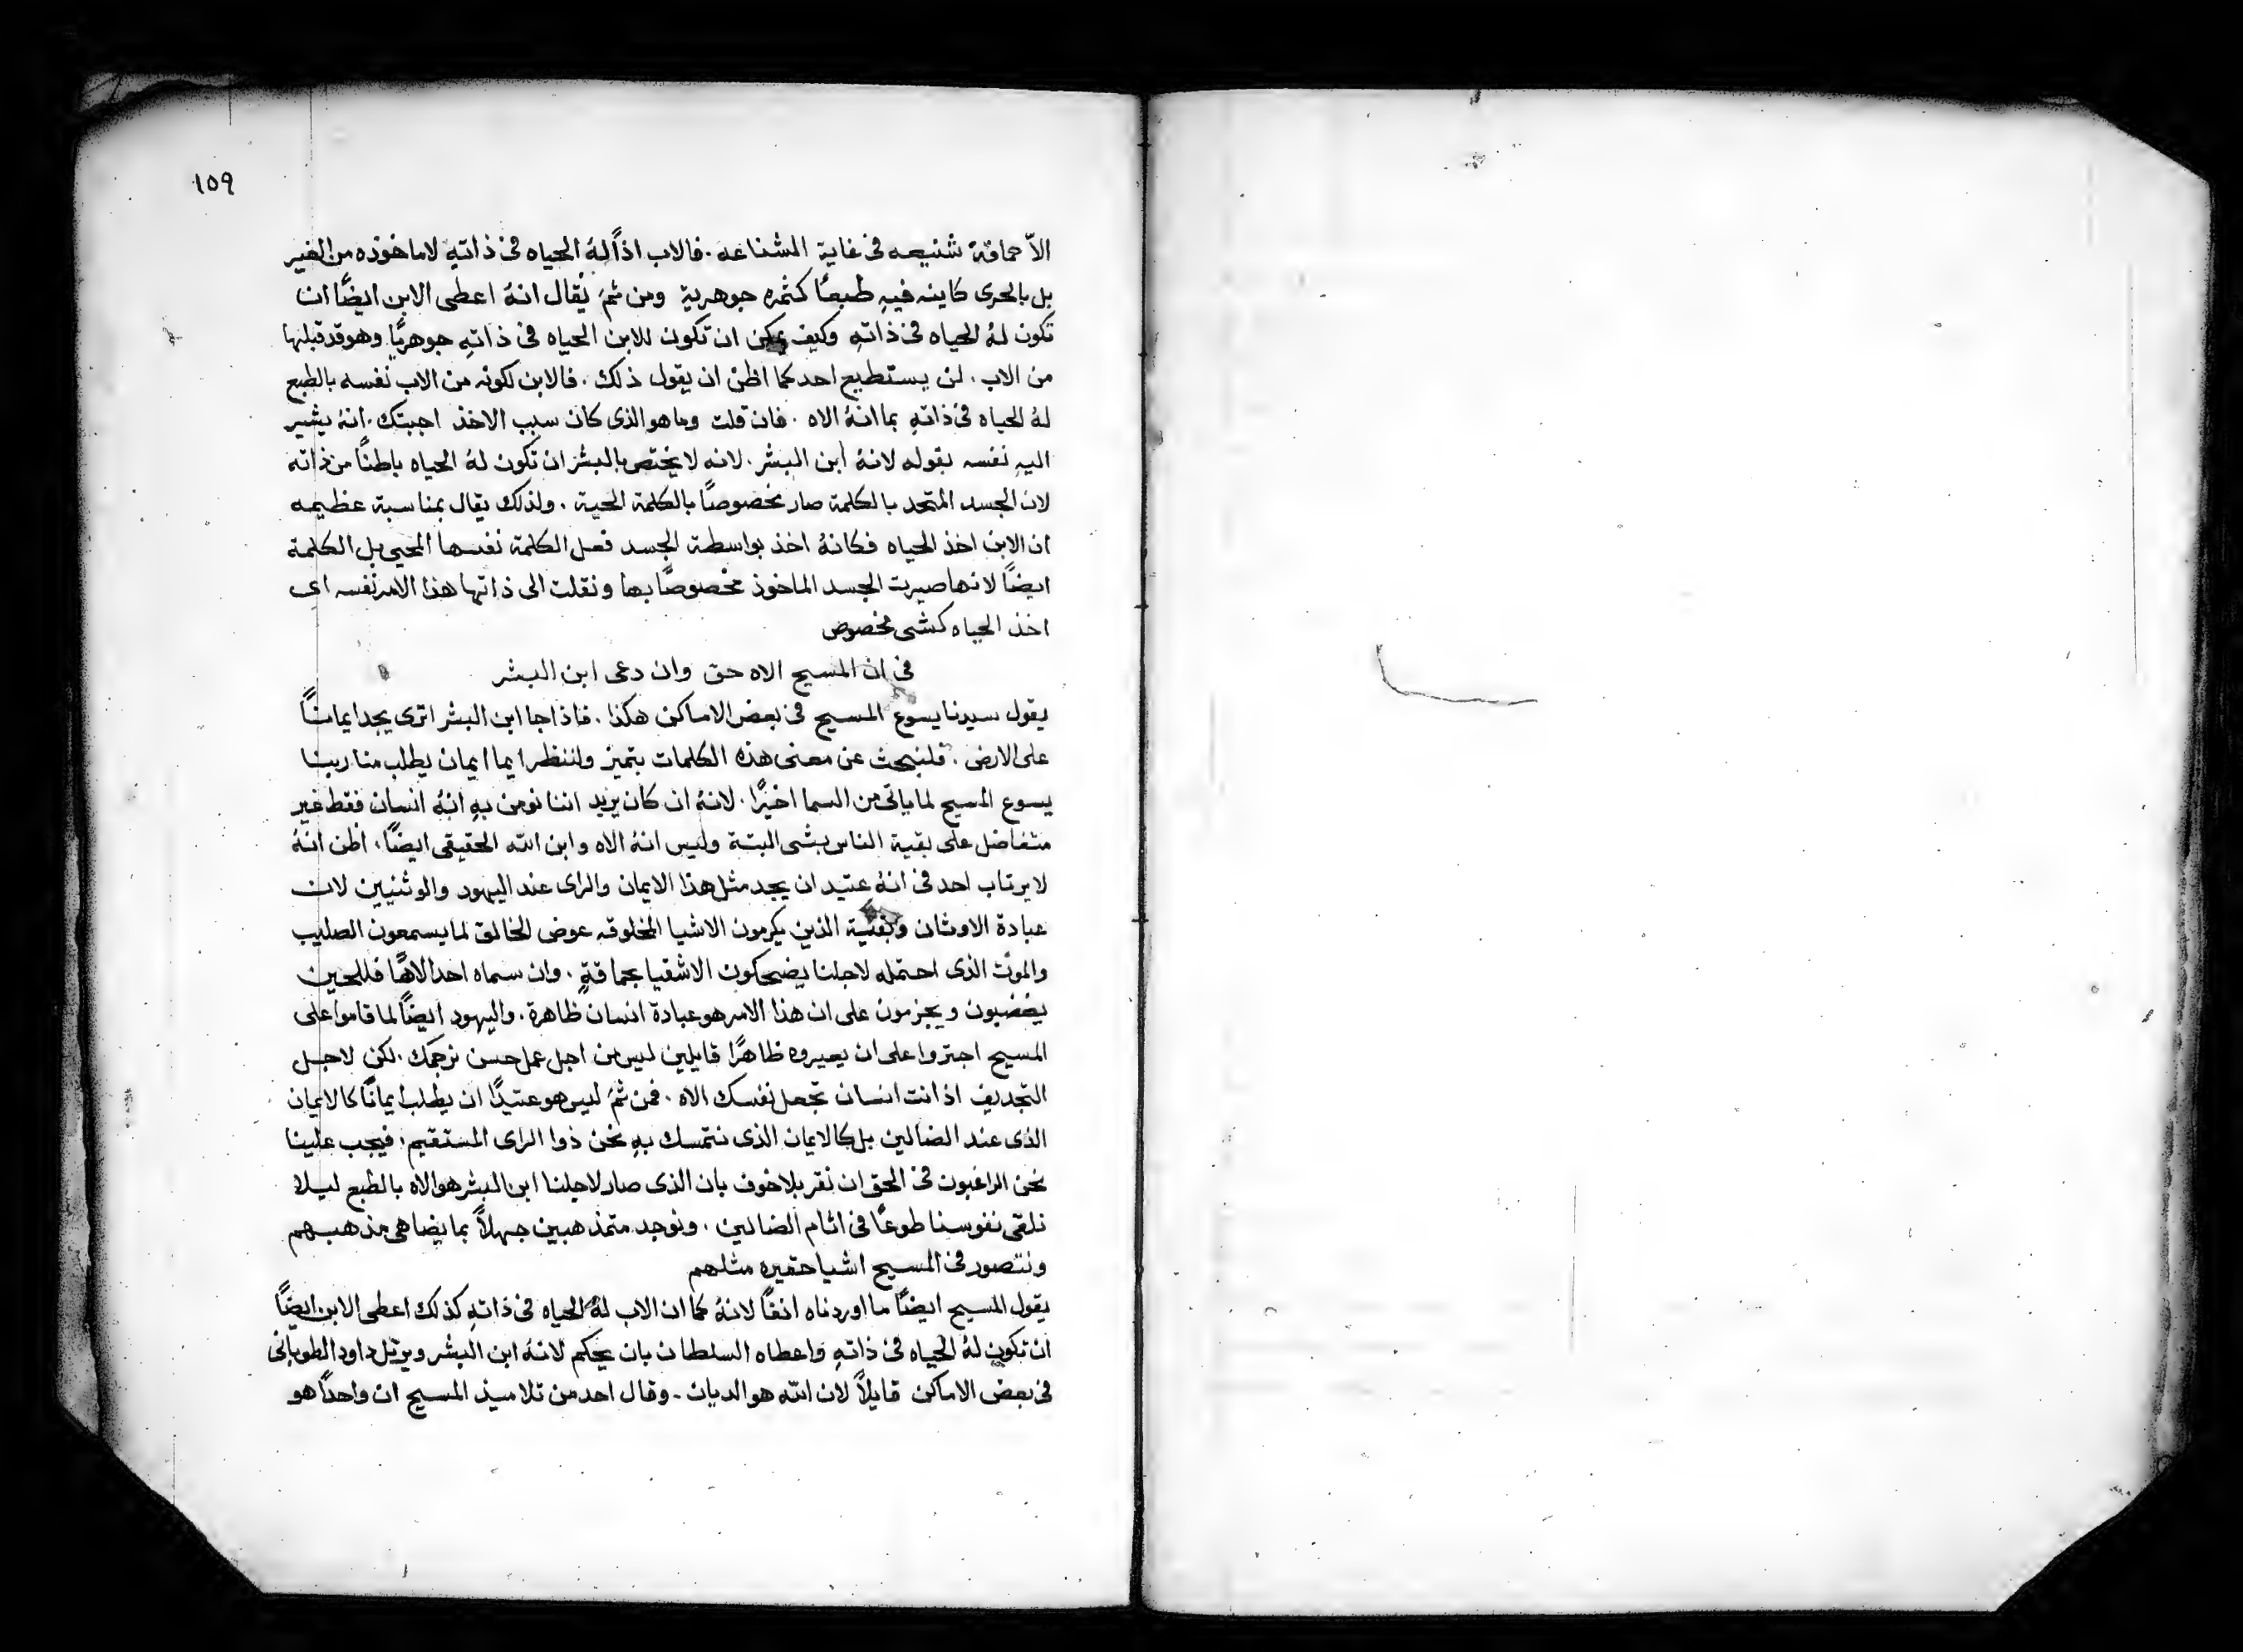 ١٥٩
الاّ حماقة شنيعه فى غاية الشناعه. فالاب اذاً لهُ الحياه فى ذاتهِ لا ماخوذه من الغير
بل بالحرى كاينه فيهِ طبعاً كثمره جوهرية ومن ثمَ يُقال انهُ اعطى الابن ايضاً ان
تكون لهُ الحياه فى ذاتهِ وكيف يمكن ان تكون للابن الحياه فى ذاتهِ جوهرياً وهو قد قبلها
من الاب. لن يستطيع احد كما اظن ان يقول ذلك. فالابن لكونه من الاب نفسه بالطبع
لهُ الحياه فى ذاتهِ بما انهُ الاه. فان قلت وما هو الذى كان سبب الاخذ اجبتك. انهُ يشير
اليهِ نفسه بقوله لانهُ ابن البشر. لانه لا يختص بالبشر ان تكون لهُ الحياه باطناً من ذاته
لان الجسد المتحد بالكلمة صار مخصوصاً بالكلمة الحية. ولذلك يقال بمناسبة عظيمه
ان الابن اخذ الحياه فكانهُ اخذ بواسطة الجسد فعل الكلمة نفسها المحيى بل الكلمة
ايضاً لانها صيرت الجسد الماخوذ مخصوصاً بها ونقلت الى ذاتها هذا الامر نفسه اى
اخذ الحياه كشى مخصوص
فى ان المسيح الاه حق وان دعى ابن البشر
يقول سيدنا يسوع المسيح فى بعض الاماكن هكذا. فاذا جا ابن البشر اترى يجد ايماناً
على الارض. فلنبحث عن معنى هذه الكلمات بتميز ولننظر ايما ايمان يطلب منا ربنا
يسوع المسيح لما ياتى من السما اخيراً. لانهُ ان كان يريد اننا نومن بهِ انهُ انسان فقط غير
متفاضل على بقية الناس بشى البتة وليس انهُ الاه وابن الله الحقيقى ايضاً. اظن انهُ
لا يرتاب احد فى انهُ عتيد ان يجد مثل هذا الايمان والراى عند اليهود والوثنيين لان
عبادة الاوثان وبقية الذين يكرمون الاشيا المخلوقه عوض الخالق لما يسمعون الصليب
والموت الذى احتمله لاجلنا يضحكون الاشقيا بحماقةٍ. وان سماه احد الاهاً فللحين
يغضبون ويجزمون على ان هذا الامر هو عبادة انسان ظاهرة. واليهود ايضاً لما قاموا على
المسيح اجتروا على ان يعيروه ظاهراً قايلين ليس من اجل عمل حسن نرجمك. لكن لاجل
التجديف اذ انت انسان تجعل نفسك الاه. فمن ثمَ ليس هو عتيداً ان يطلب ايماناً كالايمان
الذى عند الضالين بل كالايمان الذى نتمسك بهِ نحن ذوا الراى المستقيم. فيجب علينا
نحن الراغبون فى الحق ان نقر بلا خوف بان الذى صار لاجلنا ابن البشر هو الاه بالطبع ليلا
نلقى نفوسنا طوعاً فى اثام الضالين. ونوجد متمذهبين جهلاً بما يضاهى مذهبهم
ونتصور فى المسيح اشيا حقيره مثلهم
يقول المسيح ايضاً ما اوردناه انفاً لانهُ كما ان الاب لهُ الحياه فى ذاتهِ كذلك اعطى الابن ايضاً
ان تكون لهُ الحياه فى ذاتهِ واعطاه السلطان بان يحكم لانهُ ابن البشر ويرتل داود الطوبانى
فى بعض الاماكن قايلاً لان الله هو الديان. وقال احد من تلاميذ المسيح ان واحداً هو